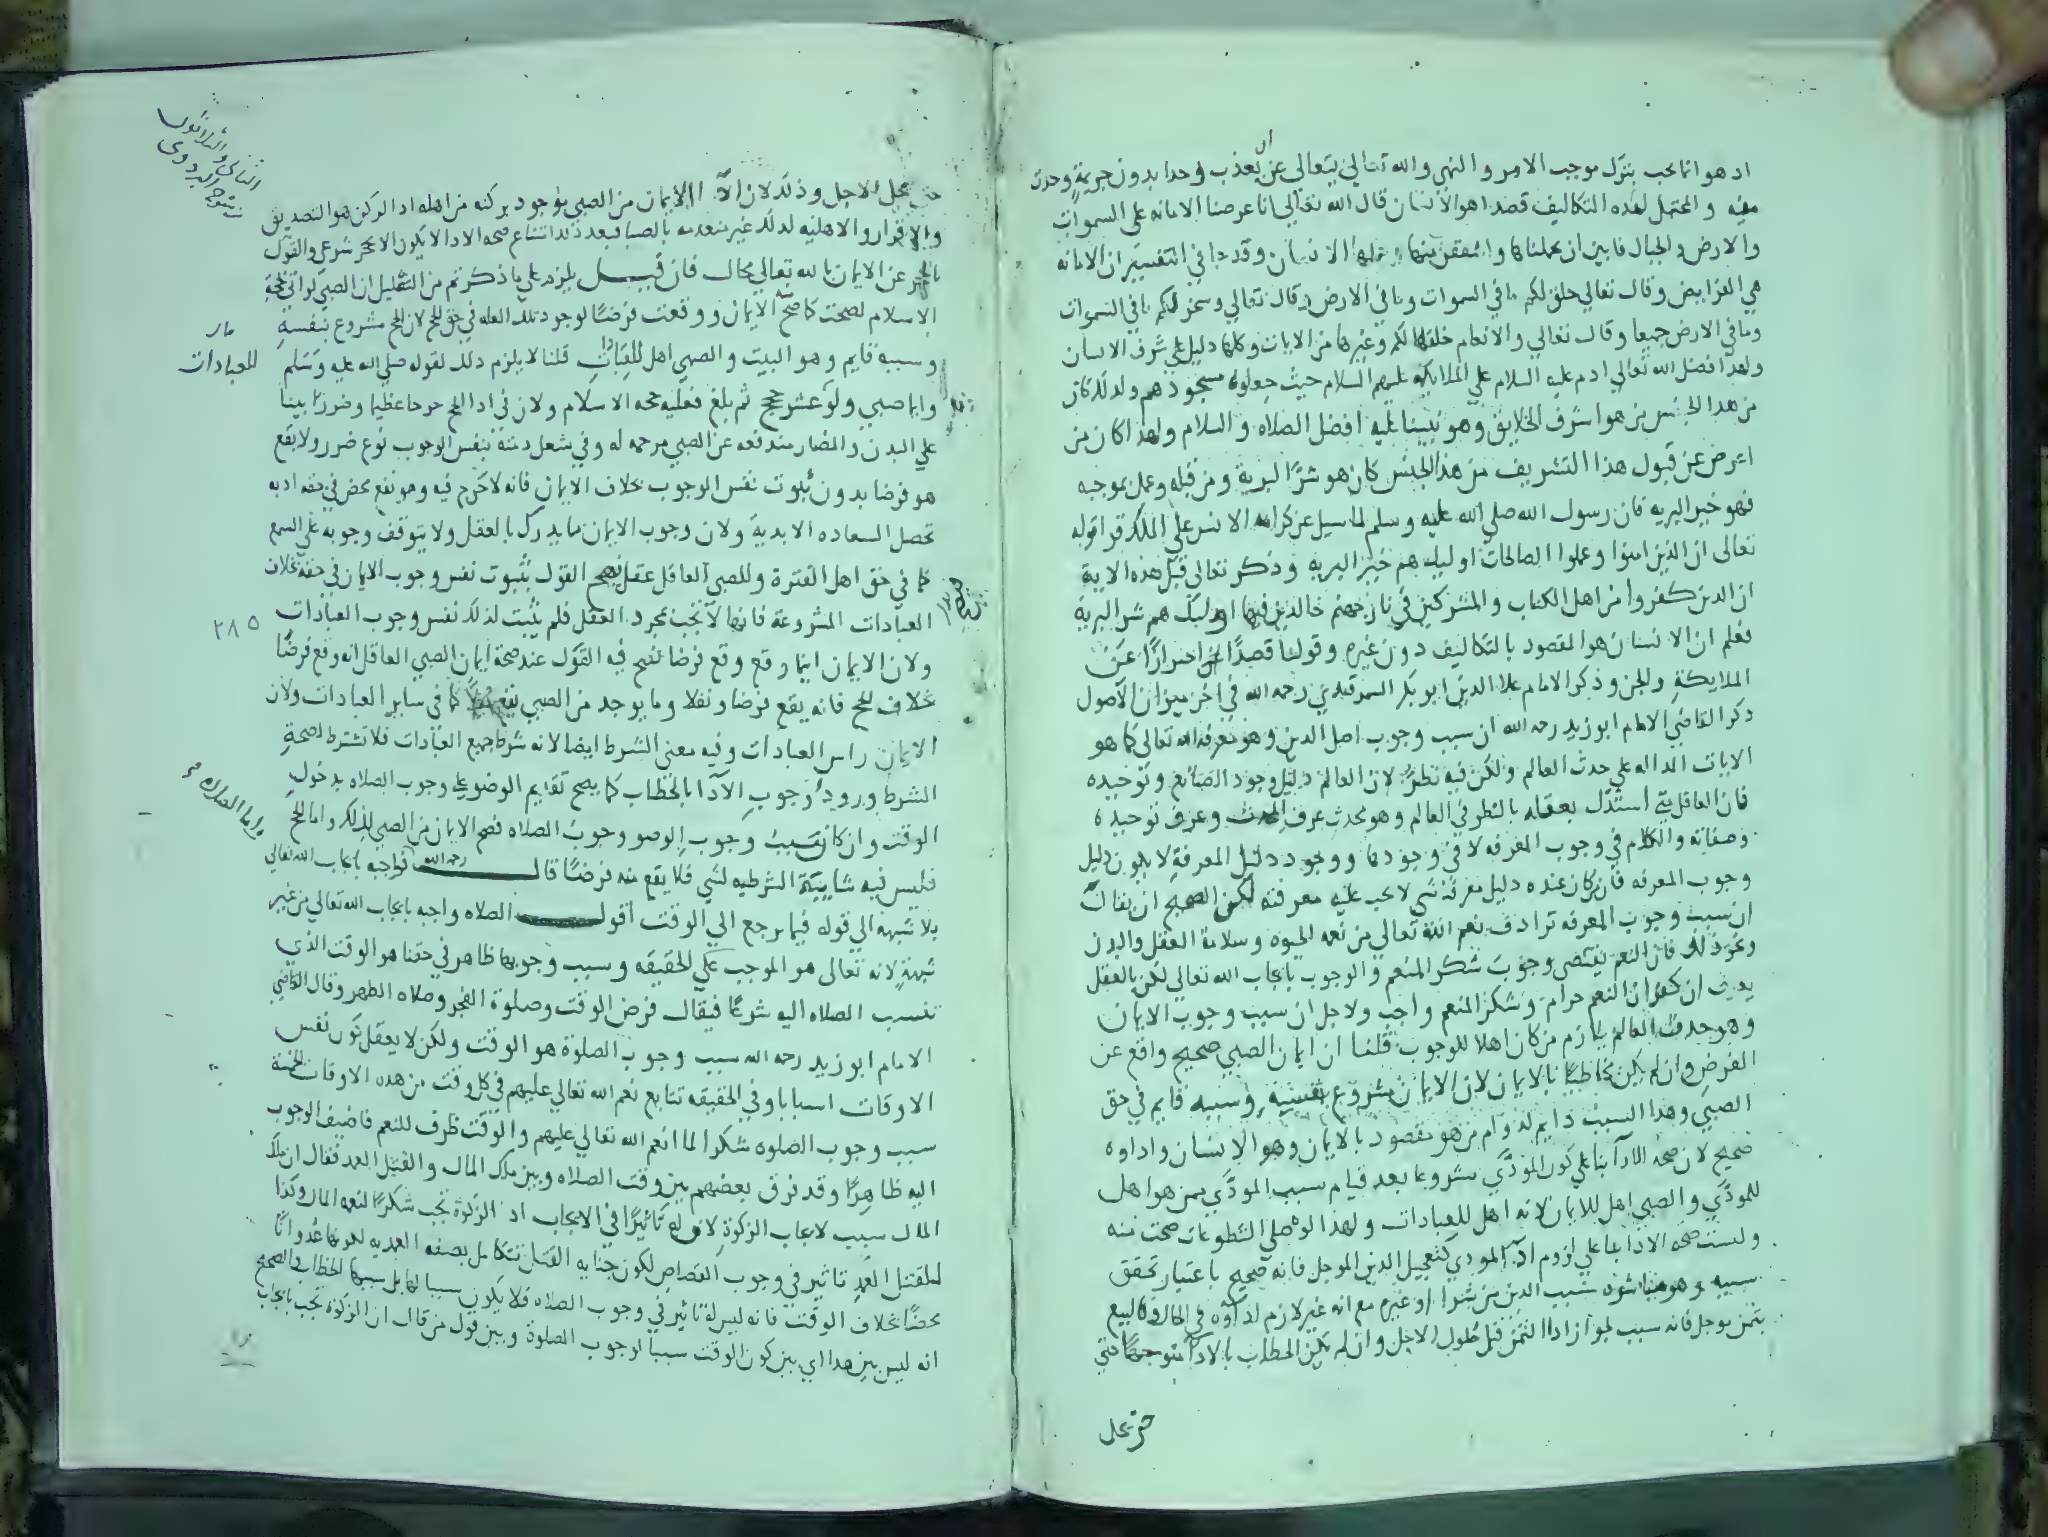 اذ هو انما يجب بترك موجب الامر والنهي والله تعالى يتعالى عن ان يعذب واحدا بدون جريمة وجدت
منه والمحتمل لهذه التكاليف قصدا هو الانسان قال الله تعالى انا عرضنا الامانه على السموات
والارض والجبال فابين ان يحملنها واشفقن منها وحملها الانسان وقد جا في التفسير ان الامانه
هي الفرايض وقال تعالى خلق لكم ما في السموات وما في الارض وقال تعالى وسخر لكم ما في السموات
وما في الارض جميعا وقال تعالى والانعام خلقها لكم وغيرها من الايات وكلها دليل على شرف الانسان
ولهذا فضل الله تعالى ادم عليه السلام على الملايكه عليهم السلام حيث جعلوه مسجودهم ولذلك كان
من هذا الجنس من هو اشرف الخلايق وهو نبينا عليه افضل الصلاه والسلام ولهذا كان من
اعرض عن قبول هذا التشريف من هذا الجنس كان هو شر البرية ومن قبله وعمل بموجبه
فهو خير البريه فان رسول الله صلى الله عليه وسلم لما سيل عن كرامه الانس على الملك قرا قوله
تعالى ان الذين امنوا وعملوا الصالحات اوليك هم خير البريه وذكر تعالى قبل هذه الاية
ان الذين كفروا من اهل الكتاب والمشركين في نار جهنم خالدين فيها اوليك هم شر البرية
فعلم ان الانسان هو المقصود بالتكاليف دون غيره وقولنا قصدا احترازا عن
الملايكة والجن وذكر الامام علا الدين ابو بكر السمرقندي رحمه الله في اخر ميزان الاصول
ذكر القاضي الامام ابو زيد رحمه الله ان سبب وجوب اصل الدين وهو معرفه الله تعالى كما هو
الايات الداله على حدث العالم ولكن فيه نظر لان العالم دليل وجود الصانع وتوحيده
فان العاقل متى استدل بعقله بالنظر في العالم وهو محدث عرف المحدث وعرف توحيده
وصفاته والكلام في وجوب المعرفه لا في وجودها ووجود دليل المعرفة لا يكون دليل
وجوب المعرفه فان من كان عنده دليل معرفه شي لا يجب عليه معرفته لكن الصحيح ان يقال
ان سبب وجوب المعرفه ترادف نعم الله تعالى من نعمه الحيوه وسلامة العقل والبدن
ونحو ذلك فان النعم يقتضى وجوب شكر المنعم والوجوب بايجاب الله تعالى لكن بالعقل
يعرف ان كفران النعم حرام وشكر المنعم واجب ولاجل ان سبب وجوب الايمان
وهو حدث العالم يلازم من كان اهلا للوجوب قلنا ان ايمان الصبي صحيح واقع عن
الفرض وان لم يكن مخاطبا بالايمان لان الايمان مشروع بنفسه وسببه قايم في حق
الصبي وهذا السبب دايم لدوام من هو مقصود بالايمان وهو الانسان واداوه
صحيح لان صحه الادا بنا على كون المؤدى مشروعا بعد قيام سبب المودى ممن هو اهل
للمودى والصبي اهل للايمان لانه اهل للعبادات ولهذا لو صلى التطوعات صحت منه
وليست صحه الادا بنا على لزوم ادا المودى كتعجيل الدين الموجل فانه صحيح باعتبار تحقق
سببه وهو مباشره سبب الدين من شرا او غيره مع انه غير لازم اداوه في الحال كالبيع
بثمن موجل فانه سبب لجواز ادا الثمن قبل حلول الاجل وان لم يكن الخطاب بالادا متوجها حتى
حتى يحل
الثاني والثلاثون
من شرح البزدوى
حتى يحل الاجل وذلك لان الايمان من الصبي موجود بركنه من اهله اذ الركن هو التصديق
والاقرار والاهليه لذلك غير منعدمه بالصبا فبعد ذلك امتناع صحه الادا لا يكون الا بحجر شرعي والقول
بالحجر عن الايمان بالله تعالى محال فان قيل يلزم على ما ذكرتم من التعليل ان الصبي لو اتى بحجة
الاسلام لصحت كما صح منه الايمان ووقعت فرضا لوجود تلك العله في حق الحج لان الحج مشروع بنفسه
وسببه قايم وهو البيت والصبي اهل للعبادات قلنا لا يلزم ذلك لقوله صلى الله عليه وسلم
للعبادات
وايما صبي ولو عشر حجج ثم بلغ فعليه حجه الاسلام ولان في ادا الحج حرجا عظيما وضررا بينا
على البدن والمضار مندفعه عن الصبي مرحمه له وفي شغل ذمته بنفس الوجوب نوع ضرر ولا يقع
هو فرضا بدون ثبوت نفس الوجوب بخلاف الايمان فانه لا حرج فيه وهو نفع محض في حقه اذ به
تحصل السعاده الابدية ولان وجوب الايمان ما يدرك بالعقل ولا يتوقف وجوبه على السمع
كما في حق اهل الفترة وللصبي العاقل عقل فصح القول بثبوت نفس وجوب الايمان في حقه بخلاف
العبادات المشروعة فانها لا تجب بمجرد العقل فلم يثبت لذلك نفس وجوب العبادات
٢٨٥
ولان الايمان اينما وقع وقع فرضا فيصح فيه القول عند صحة ايمان الصبي العاقل انه وقع فرضا
بخلاف الحج فانه يقع فرضا ونفلا وما يوجد من الصبي يقع نفلا كما في ساير العبادات ولان
الايمان راس العبادات وفيه معنى الشرط ايضا لانه شرط جميع العبادات فلا تشترط لصحة
الشرط ورود وجوب الادا بالخطاب كما يصح تقديم الوضو على وجوب الصلاه بدخول
واما الصلاه
الوقت وان كان سبب وجوب الوضو وجوب الصلاه فصح الايمان من الصبي لذلك واما الحج
فليس فيه شايبة الشرطيه لشي فلا يقع منه فرضا قال رحمه الله فواجبه بايجاب الله تعالى
بلا شبهه الى قوله فيما يرجع الى الوقت اقول الصلاه واجبه بايجاب الله تعالى من غير
شبهة لانه تعالى هو الموجب على الحقيقه وسبب وجوبها ظاهر في حقنا هو الوقت الذي
تنسب الصلاه اليه شرعا فيقال فرض الوقت وصلوة الفجر وصلاه الظهر وقال القاضي
الامام ابو زيد رحمه الله سبب وجوب الصلوة هو الوقت ولكن لا يعقل كون نفس
الاوقات اسبابا وفي الحقيقه تتابع نعم الله تعالى عليهم في كل وقت من هذه الاوقات الخمسة
سبب وجوب الصلوه شكرا لما انعم الله تعالى عليهم والوقت ظرف للنعم فاضيف الوجوب
اليه ظاهرا وقد فرق بعضهم بين وقت الصلاه وبين ملك المال والقتل العمد فقال ان ملك
المال سبب لايجاب الزكوة لان له تاثيرا في الايجاب اذ الزكوة تجب شكرا لنعمه المال وكذا
للقتل العمد تاثير في وجوب القصاص لكون جنايه القتل تتكامل بصفه العمديه لكونها عدوانا
محضا بخلاف الوقت فانه ليس له تاثير في وجوب الصلاه فلا يكون سببا لها بل سببها الخطاب والصحيح
انه ليس بين هذا اي بين كون الوقت سببا لوجوب الصلوة وبين قول من قال ان الزكوة تجب بايجاب